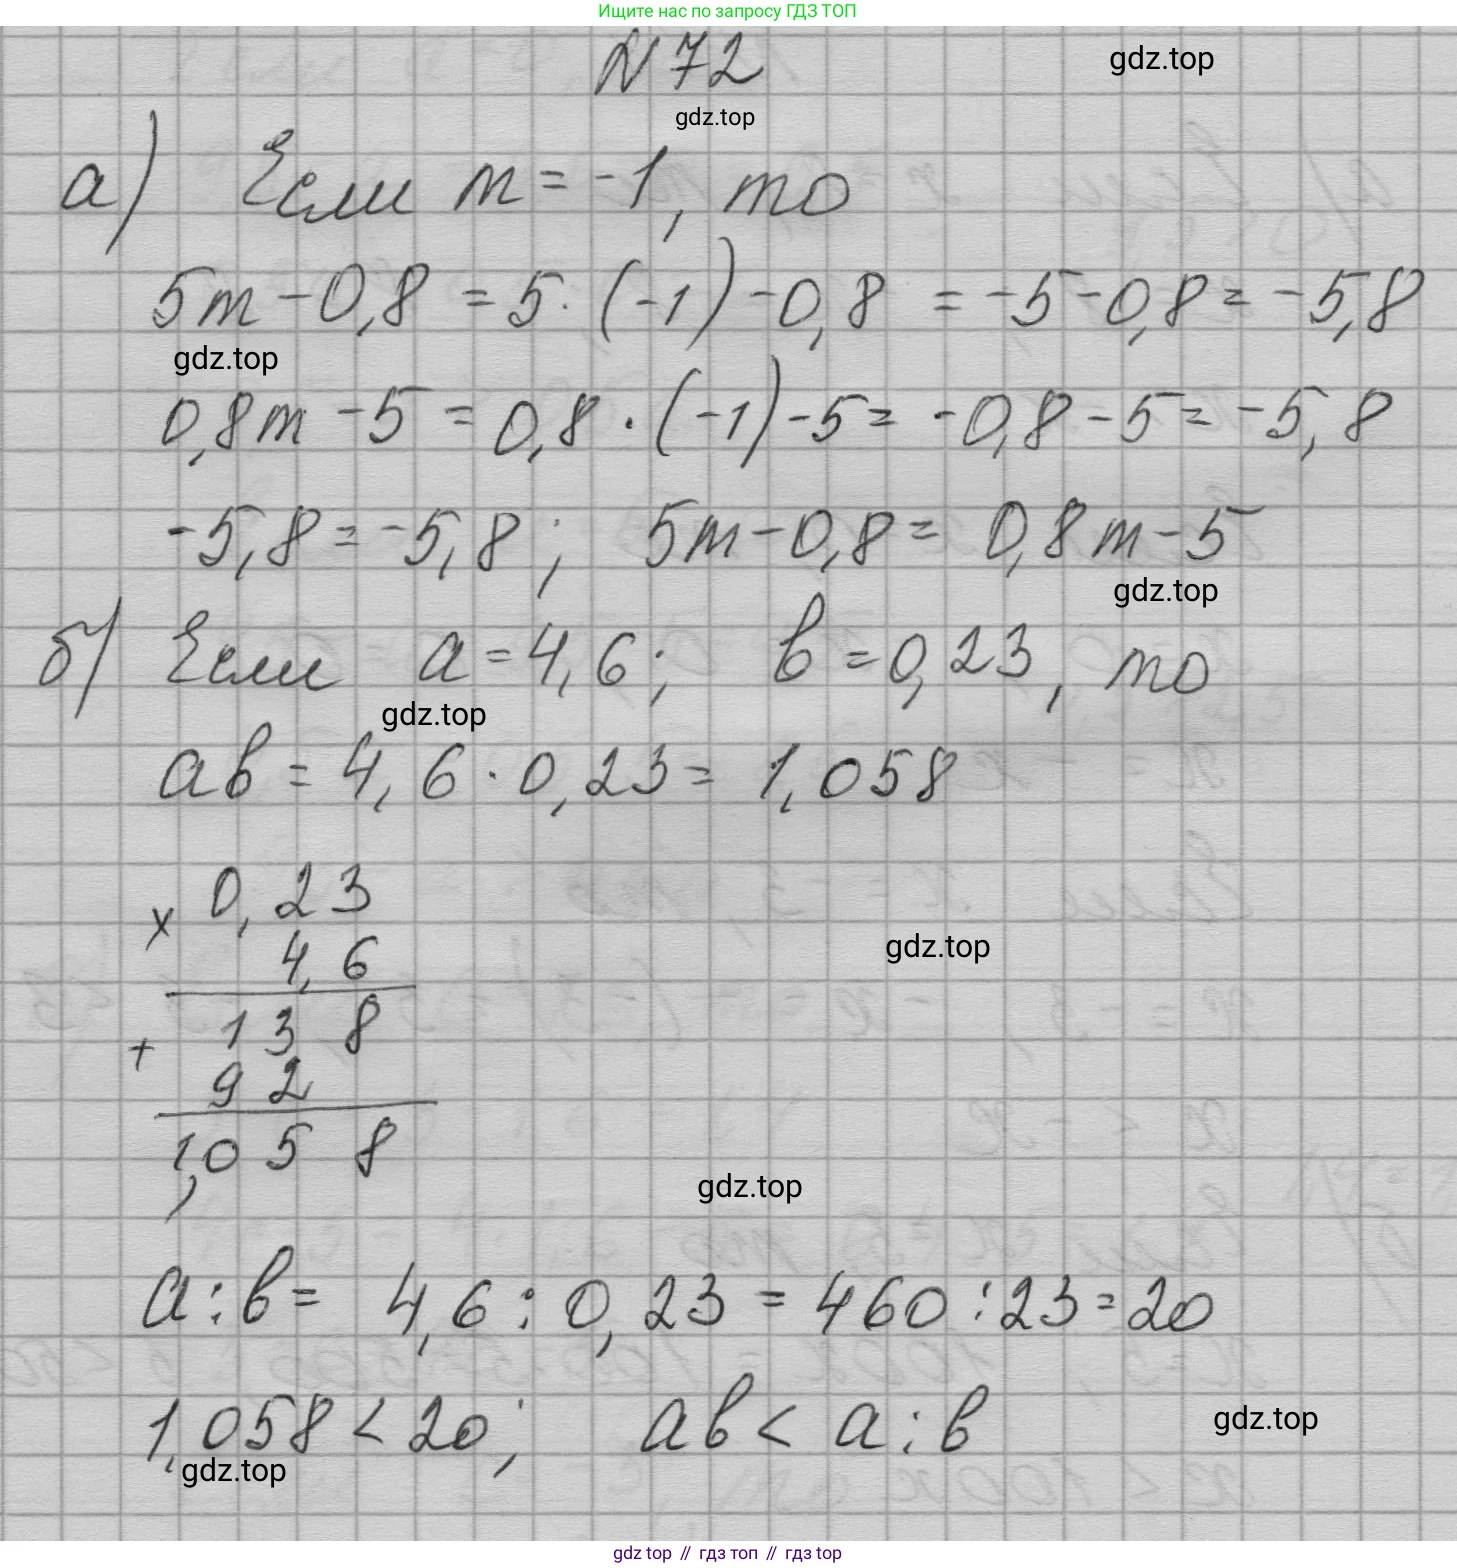 Ищите нас по запросу ГДЗ ТОП
N 72
gdz.top
gdz.top
а) Если m = -1, то
5m - 0,8 = 5 · (-1) - 0,8 = -5 - 0,8 = -5,8
gdz.top
0,8m - 5 = 0,8 · (-1) - 5 = -0,8 - 5 = -5,8
-5,8 = -5,8; 5m - 0,8 = 0,8m - 5
gdz.top
б) Если a = 4,6; b = 0,23, то
gdz.top
ab = 4,6 · 0,23 = 1,058
x 0,23
4,6
gdz.top
138
+ 92
1,058
gdz.top
a : b = 4,6 : 0,23 = 460 : 23 = 20
1,058 < 20; ab < a : b
gdz.top
gdz.top
gdz top // гдз топ // гдз top